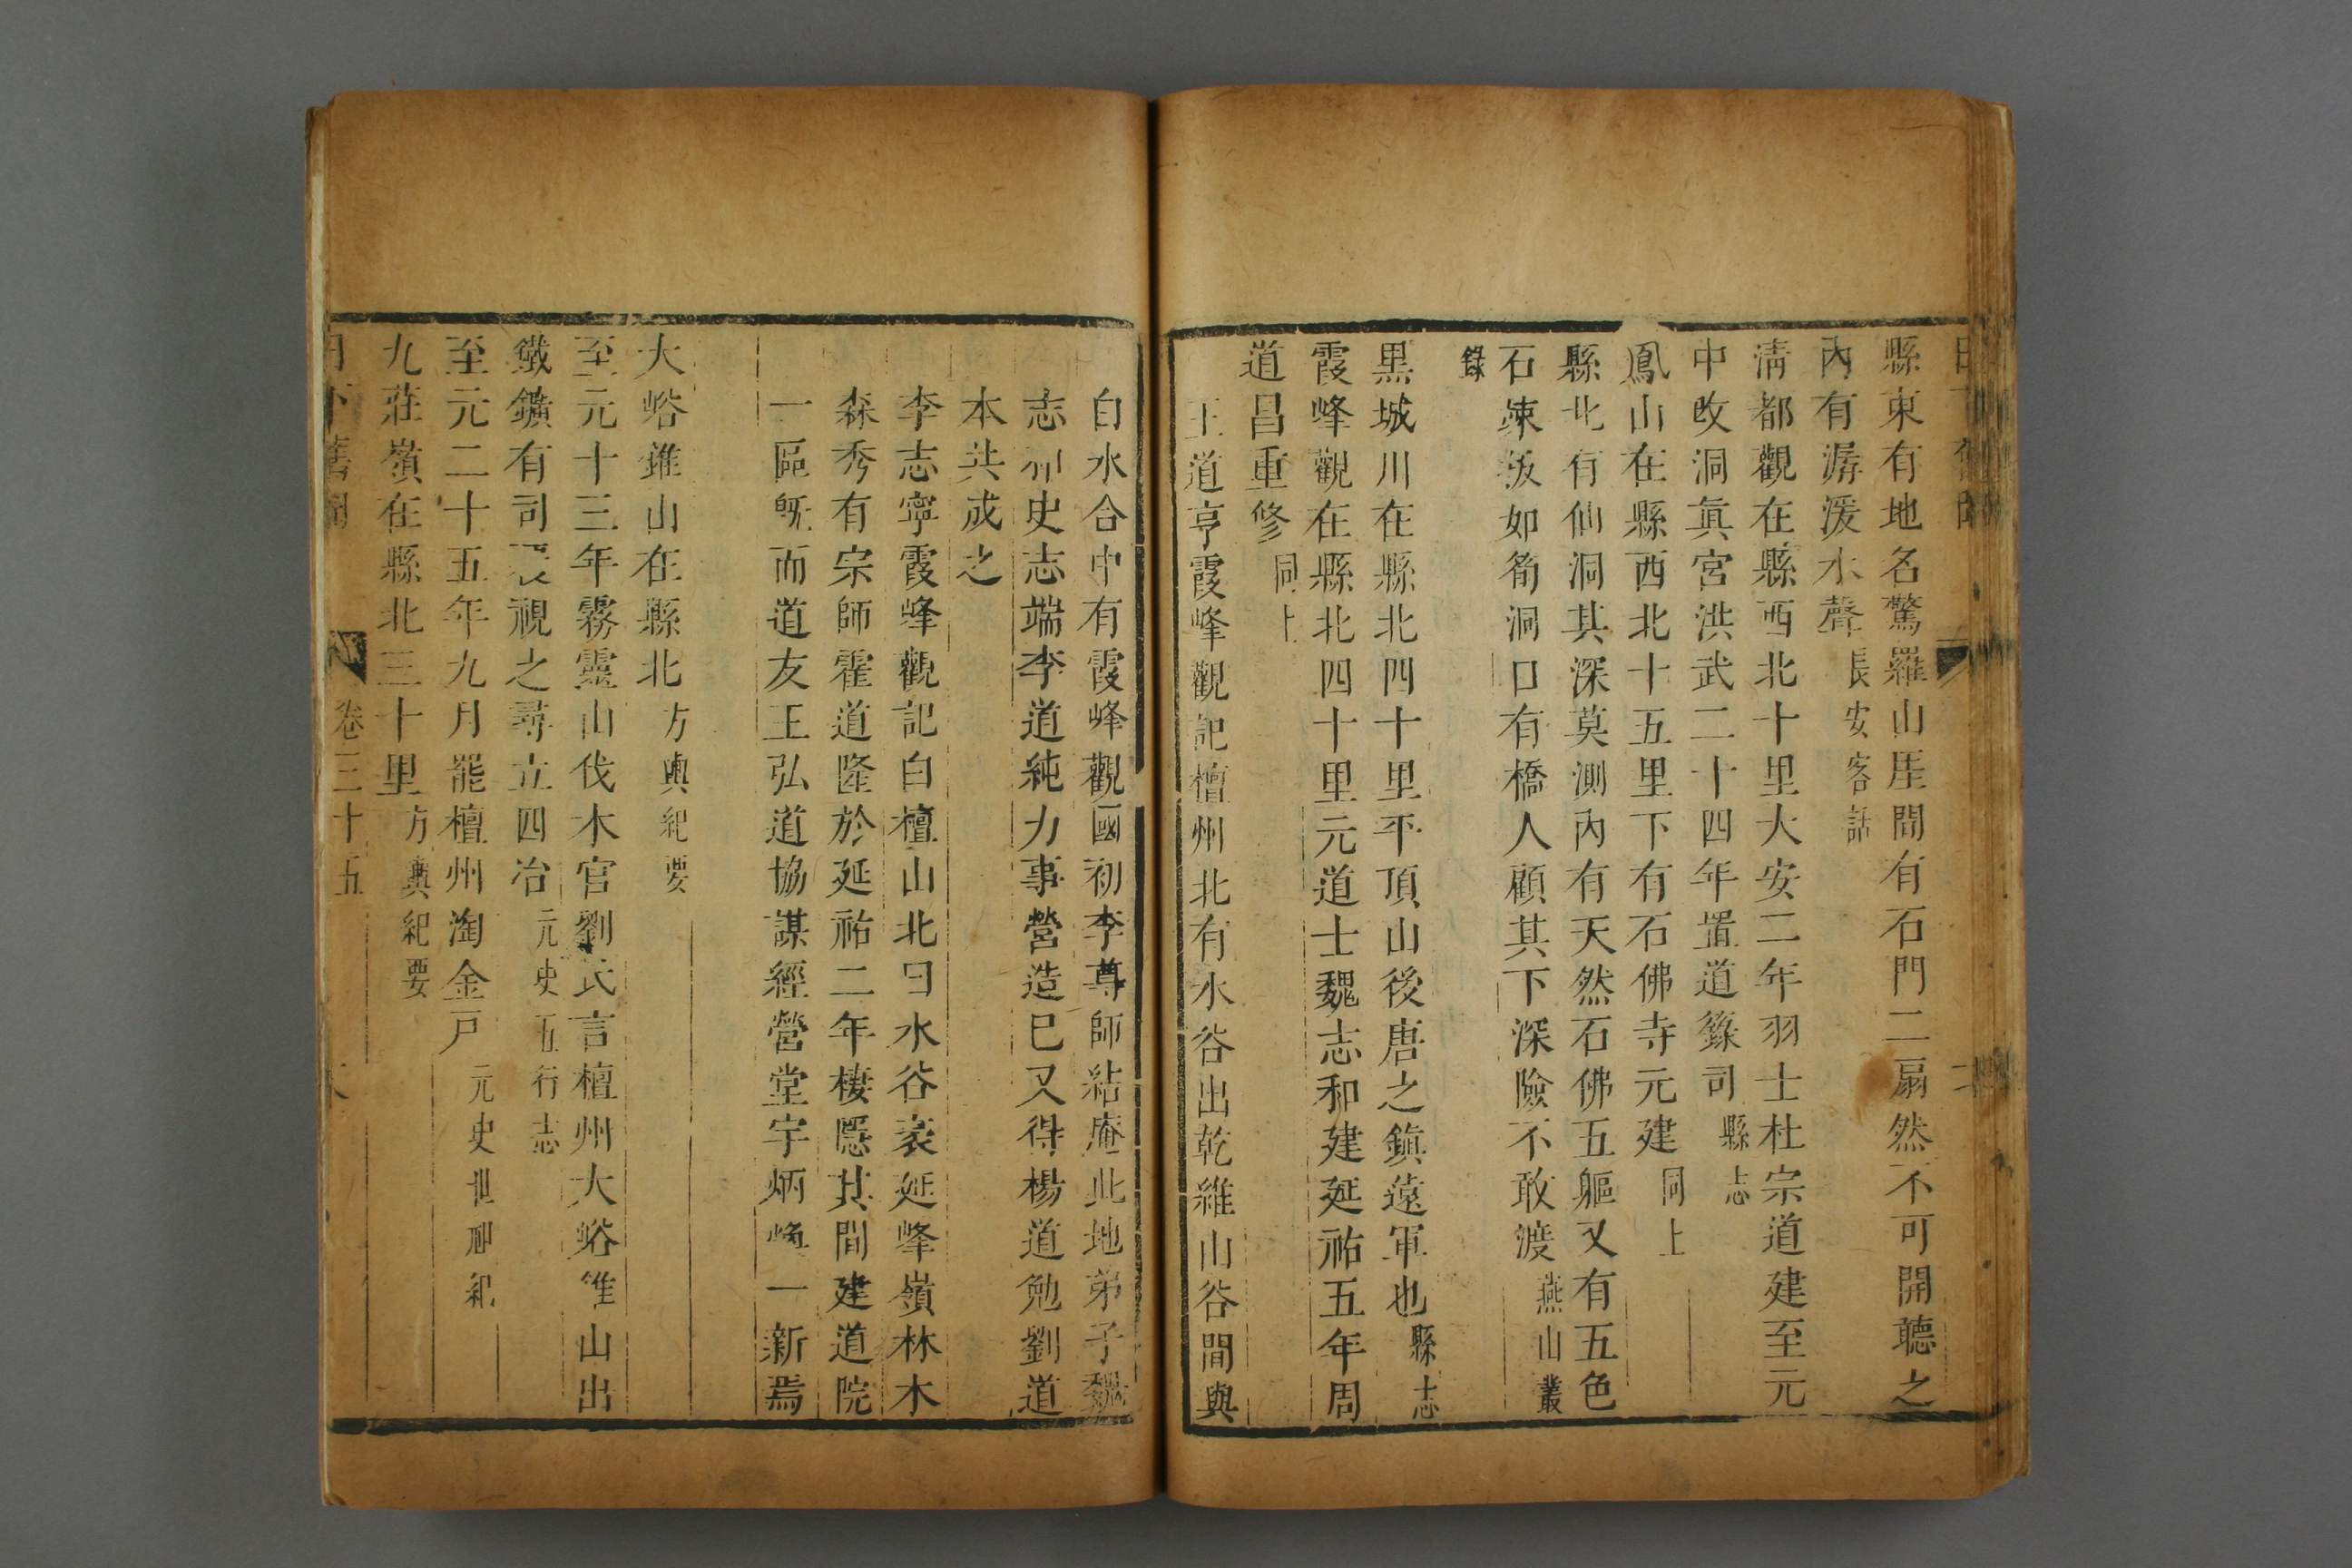 縣東有地名驚羅山厓間有石門二扇然不可開聽之
內有潺湲水聲長安客話
淸都觀在縣西北十里大安二年羽士杜宗道建至元
中改洞眞宮洪武二十四年置道籙司縣志
鳳山在縣西北十五里下有石佛寺元建同上
縣北有仙洞其深莫測內有天然石佛五軀又有五色
石竦拔如筍洞口有橋人顧其下深險不敢渡燕山叢
錄
黑城川在縣北四十里平頂山後唐之鎭遠軍也縣志
霞峰觀在縣北四十里元道士魏志和建延祐五年周
道昌重修同上
王道亨霞峰觀記檀州北有水谷出乾維山谷間與
白水合中有霞峰觀國初李尊師結庵此地弟子魏
志和史志端李道純力事營造已又得楊道勉劉道
本共成之
李志寧霞峰觀記白檀山北曰水谷袤延峰嶺林木
森秀有宗師霍道隆於延祐二年棲隱其間建道院
一區旣而道友王弘道協謀經營堂宇炳煥一新焉
大峪錐山在縣北方輿紀要
至元十三年霧靈山伐木官劉氏言檀州大峪錐山出
鐵鑛有司覆視之尋立四冶元史五行志
至元二十五年九月罷檀州淘金戸元史世祖紀
九莊嶺在縣北三十里方輿紀要
日下舊聞 卷三十五